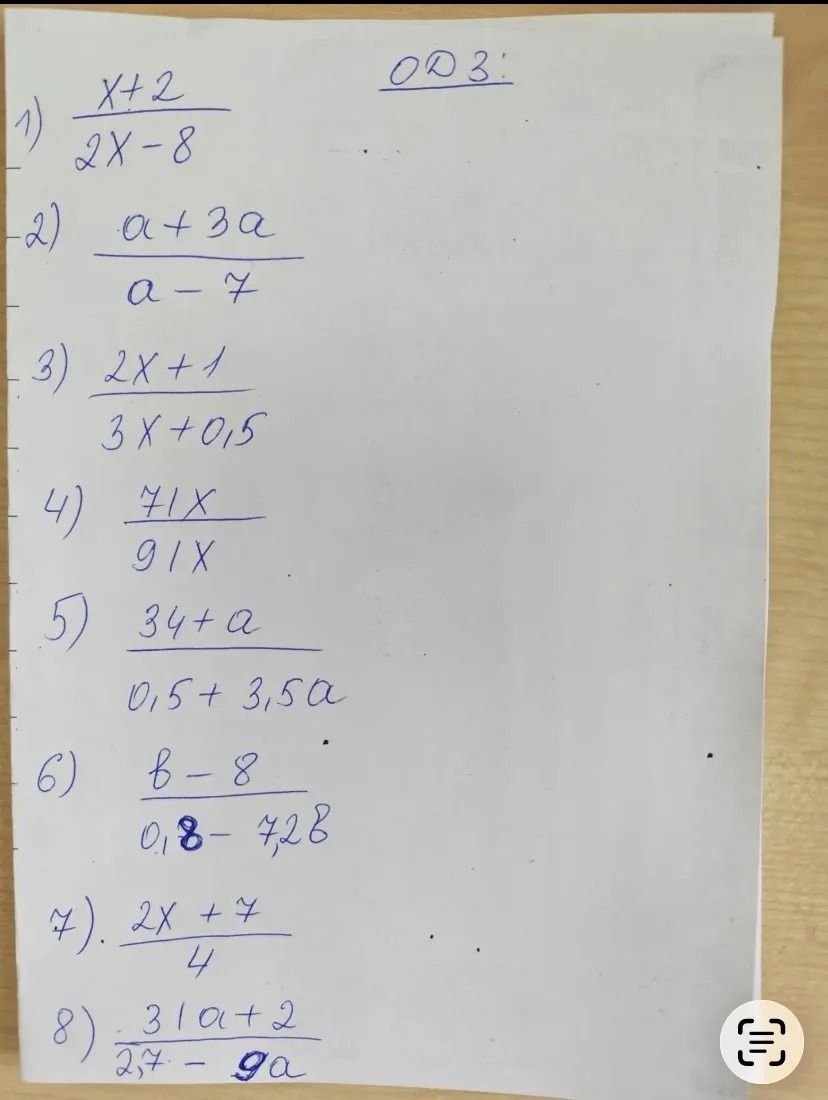 ОДЗ:
1) x+2
2x-8
2) a+3a
a-7
3) 2x+1
3x+0,5
4) 71x
91x
5) 34+a
0,5+3,5a
6) b-8
0,8-7,2b
7) 2x+7
4
8) 31a+2
2,7-9a